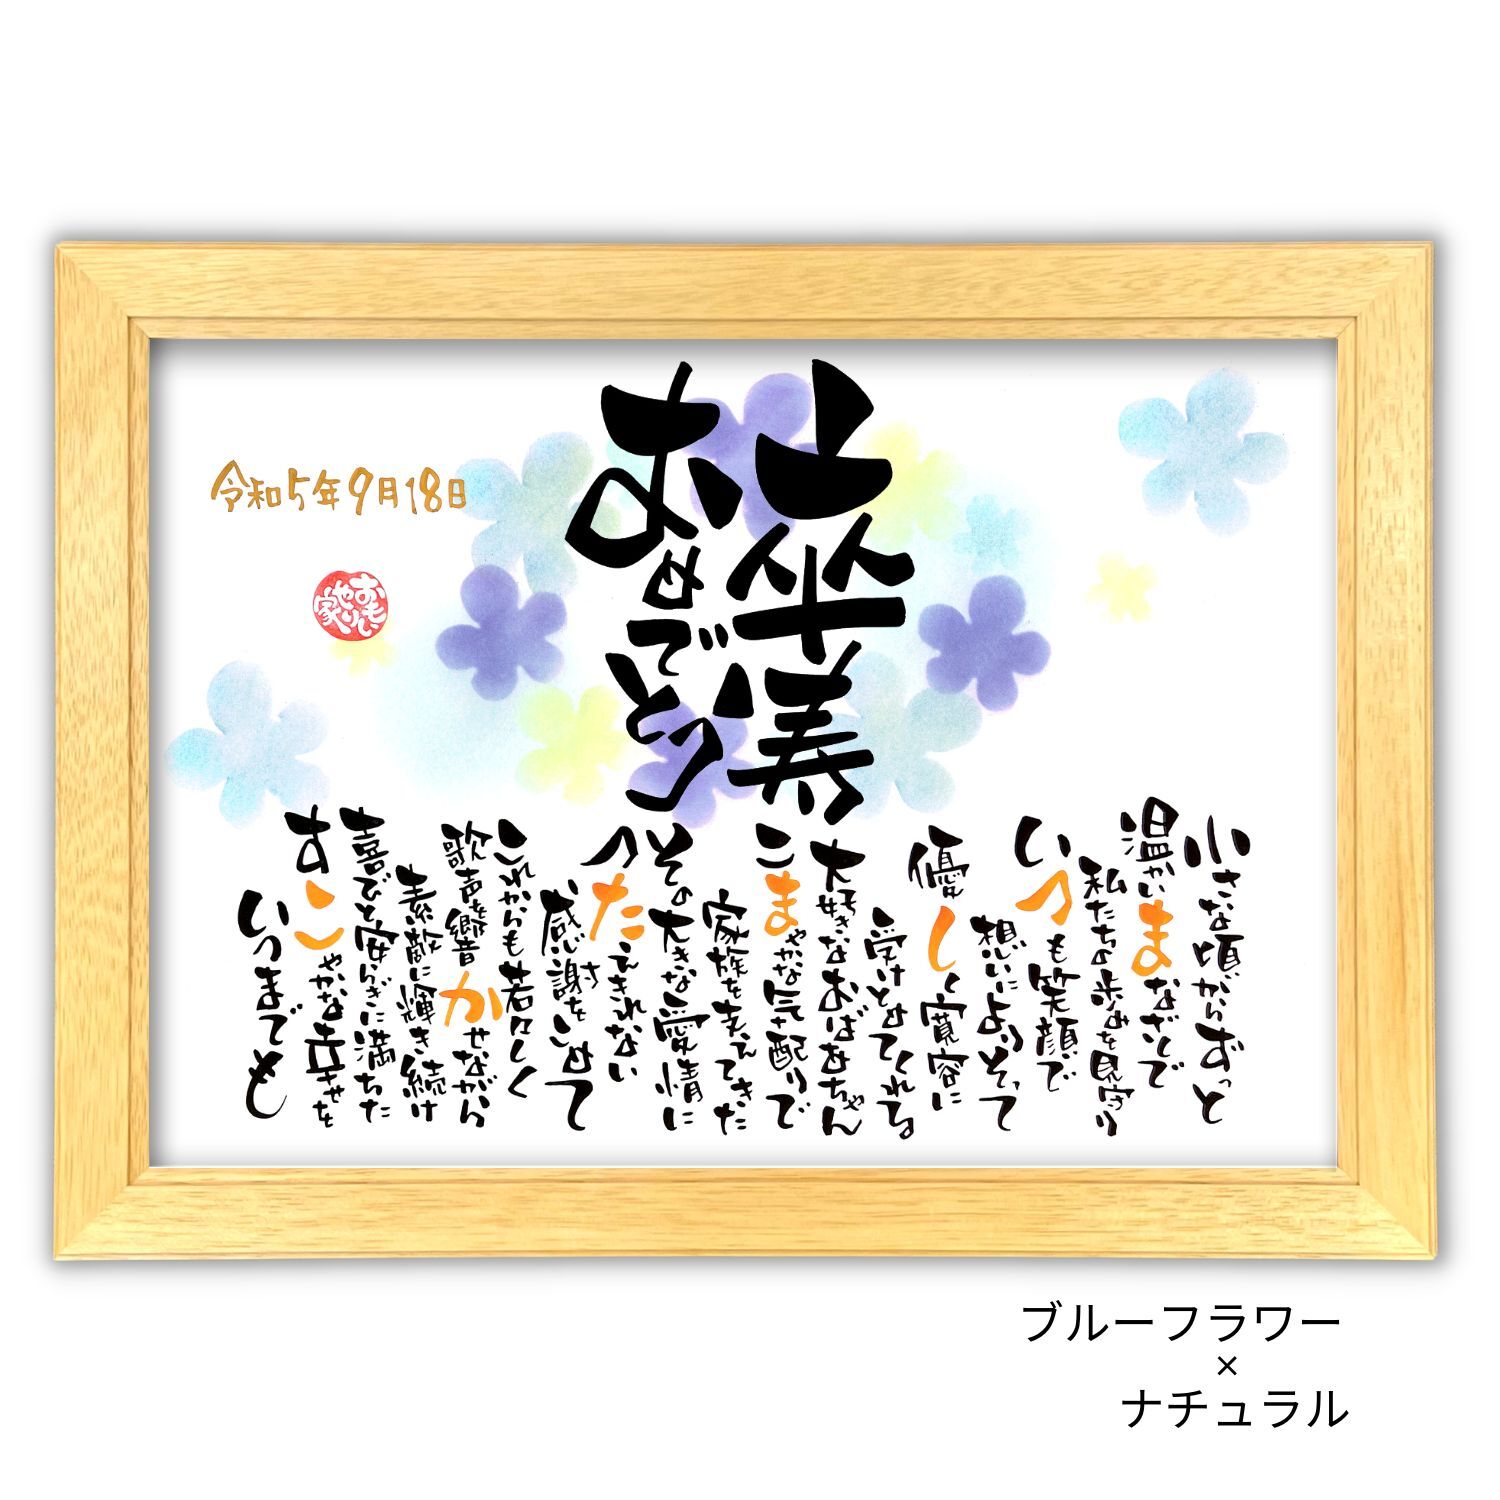 傘寿
おめでとう
令和5年9月18日
おもい
やり
家
小さな頃からずっと
温かいまなざしで
私たちの歩みを見守り
いつも笑顔で
想いによりそって
優しく寛容に
受けとめてくれる
大好きなおばあちゃん
こまやかな気配りで
家族を支えてきた
その大きな愛情に
つたえきれない
感謝をこめて
これからも若々しく
歌声を響かせながら
素敵に輝き続け
喜びと安らぎに満ちた
すこやかな幸せを
いつまでも
ブルーフラワー
×
ナチュラル